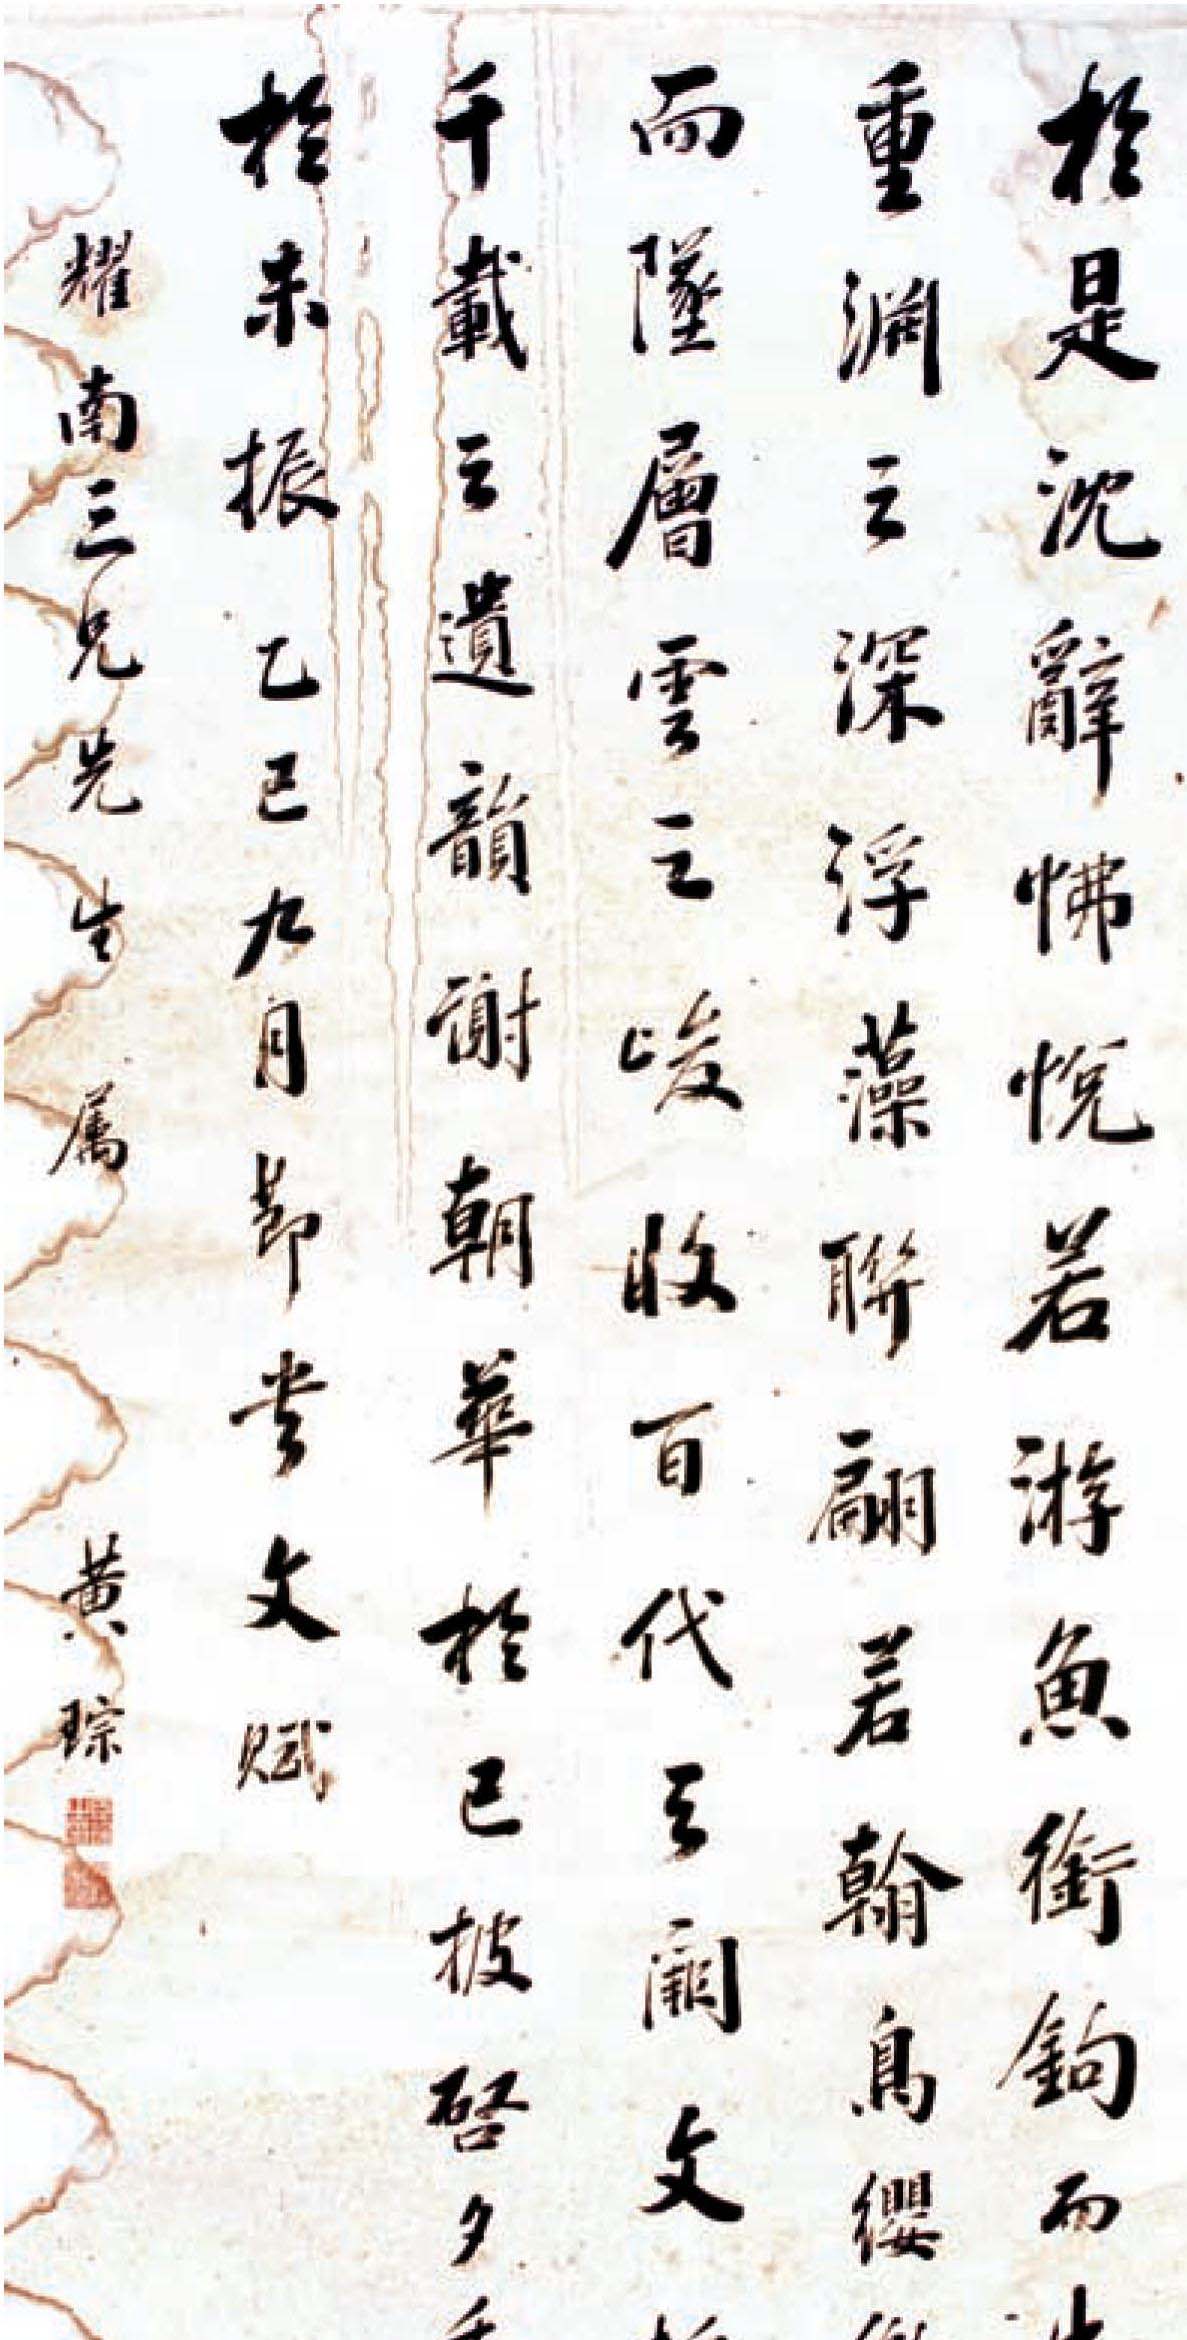 於是沈辭怫悅若游魚銜鉤而出
重淵之深浮藻聯翩若翰鳥纓
而墜層雲之峻收百代之闕文
千載之遺韻謝朝華於已披啓夕秀
於未振乙巳九月節书文賦
耀南三兄先生属
黃琮